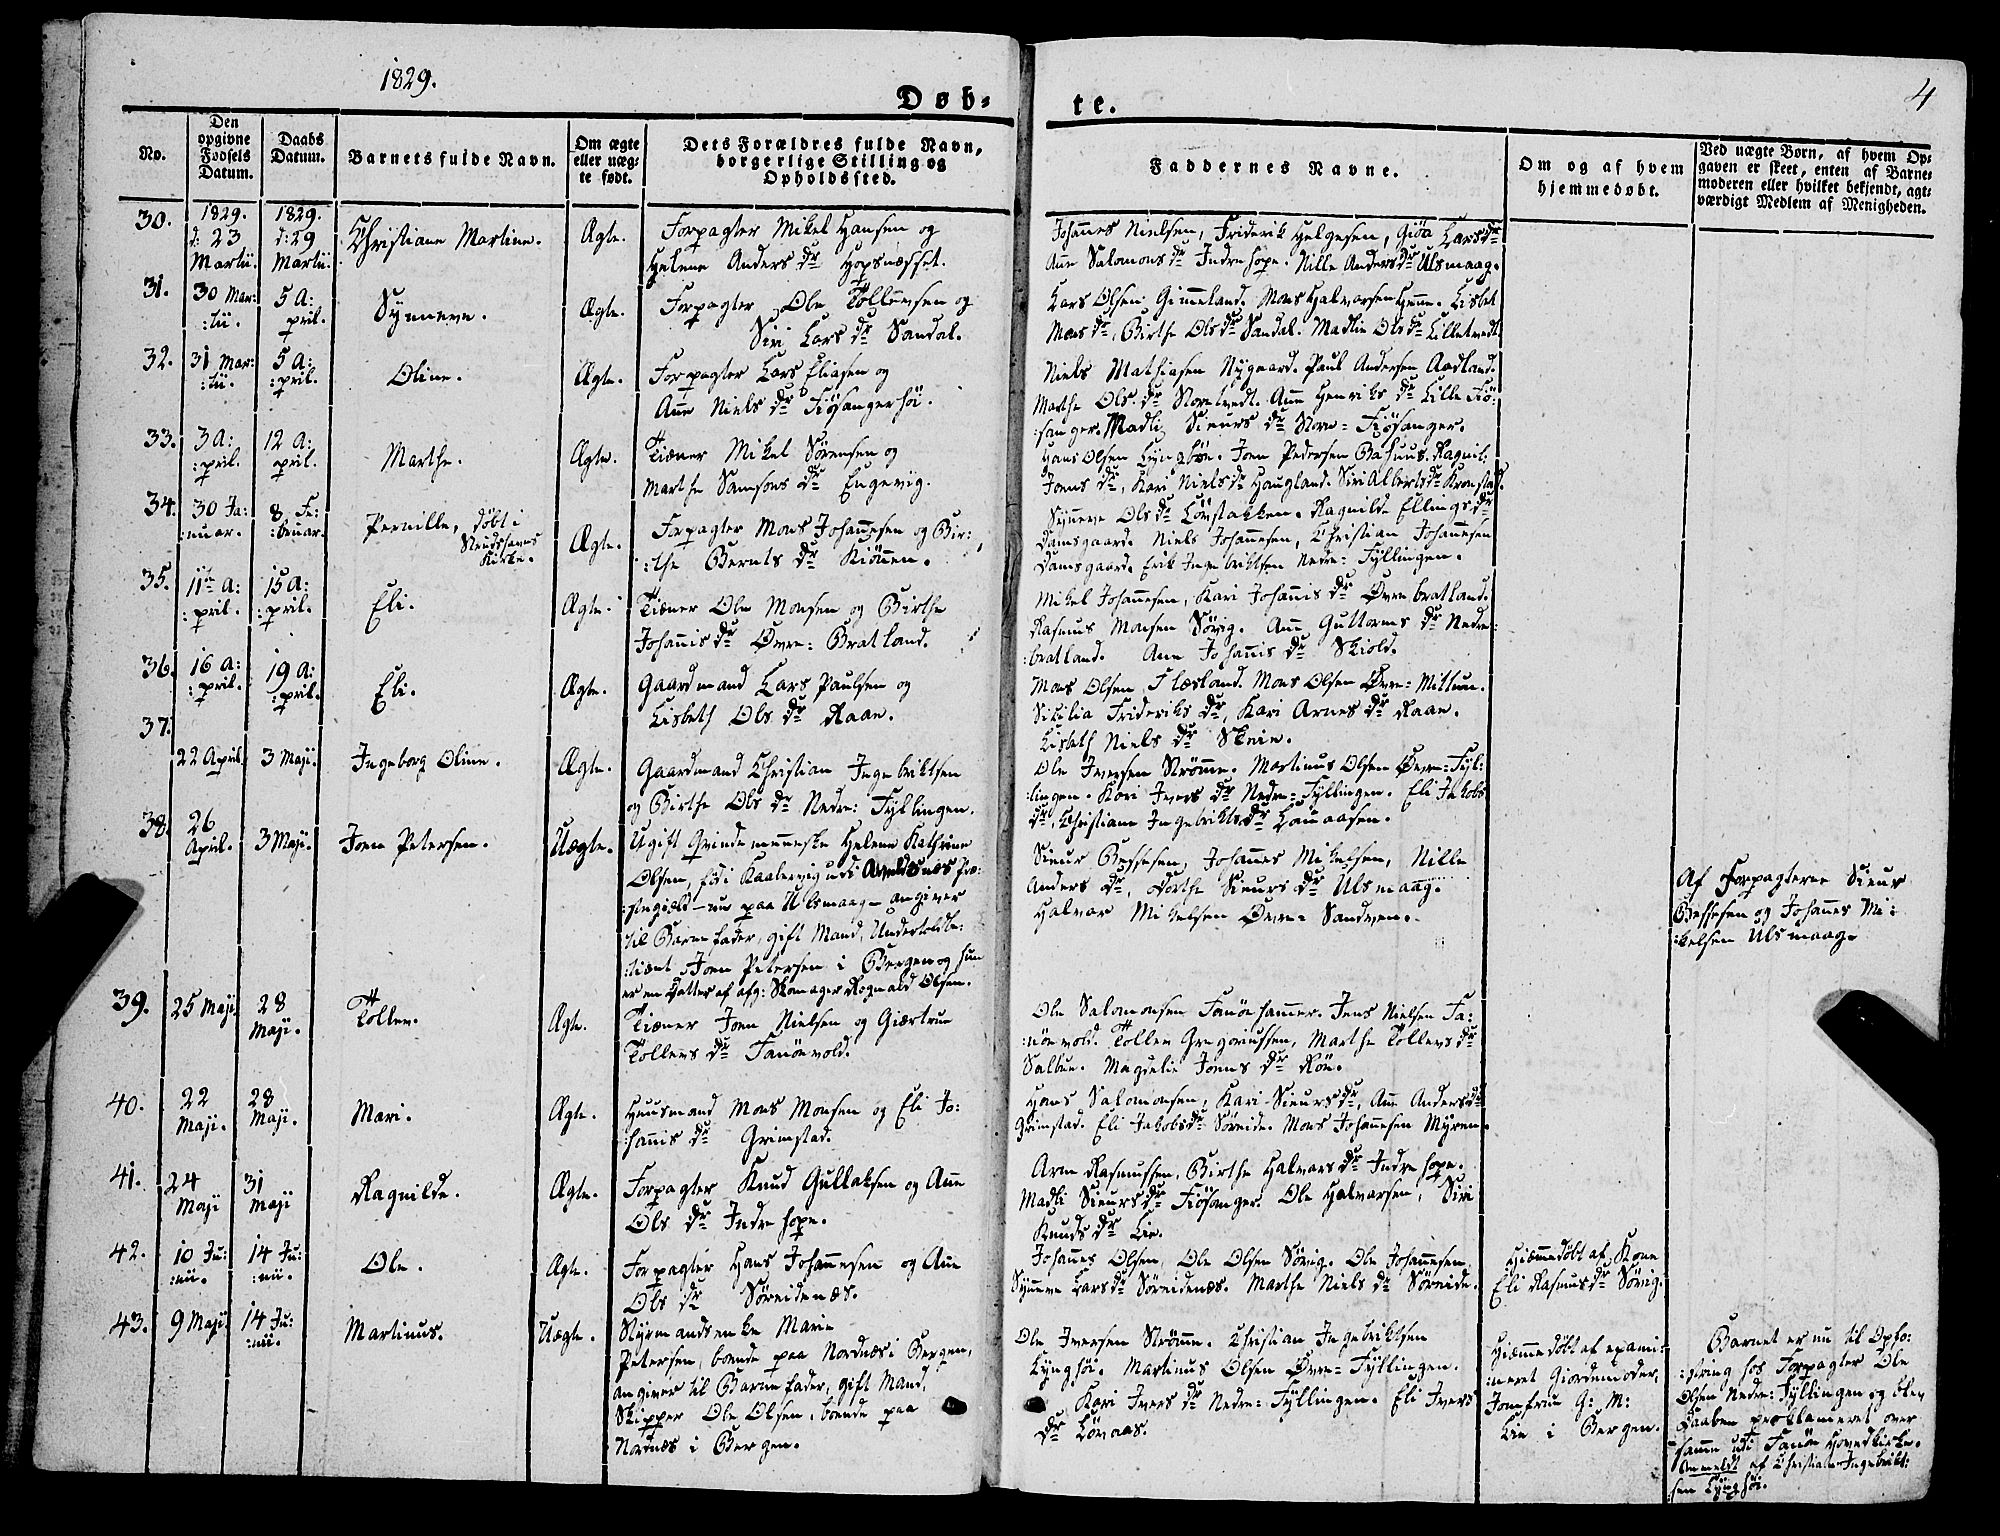 1829.
Døb-
te.
4
No.
Den
opgivne
Fødsels
Datum.
Daabs
Datum.
Barnets fulde Navn.
Om ægte
eller uæg-
te født.
Dets Forældres fulde Navn,
borgerlige Stilling og
Opholdssted.
Faddernes Navne.
Om og af hvem
hjemmedøbt.
Ved uægte Børn, af hvem Op-
gaven er skeet, enten af Barne-
moderen eller hvilket bekjendt, agt-
værdigt Medlem af Menigheden.
30.
1829.
d: 23
Martii.
1829.
d: 29
Martii.
Christiane Martine.
Ægte.
Forpagter Mikel Hansen og
Helene Anders dr Hopsnæsset.
Johannes Nielsen, Friderik Helgesen, Giøa Lars dr
Ane Salomons dr Indrehope. Nille Anders dr Ulsmaag.
31.
30 Mar:
:tii.
5 A:
pril.
Synneve.
Ægte.
Forpagter Ole Tollevsen og
Siri Lars dr Sandal.
Lars Olsen Gimmeland. Mons Halvorsen . Lisbet
Mons dr, Birthe Ols dr Sandal. Madlie Ols dr Lilletvedt
32.
31 Mar:
:tii.
5 A:
:pril.
Oline.
Ægte.
Forpagter Lars Eliasen og
Anne Niels dr Fiøsangerhøi.
Niels Mathiasen Nygaard. Paul Andersen Aadland.
Marthe Ols dr Storetvedt. Anne Henriks dr Lille Fiø:
:sanger. Madli Sieurs dr Store-Fiøsanger.
33.
3 A:
:pril.
12 A:
pril.
Marthe.
Ægte.
Tiæner Mikel Sørensen og
Marthe Samsons dr Engevig.
Hans Olsen Lyngbøe. Joen Pedersen . Ragnil:
Joens dr, Kari Niels dr Haugland. Siri Alberts dr Kronstad.
34.
30 Ja:
:nuar.
8 Fe:
:bruar.
Pernille, døbt i
Kirke.
Ægte.
Forpagter Mons Johannesen og Bir:
:the Bernts dr Kiønen.
Synneve Ols dr Løvstakken. Ragnilde Ellings dr
Damsgaard. Niels Johannesen, Christian Johannesen
Damsgaard. Erik Ingebriktsen Nedre-Fyllingen.
35.
11te A:
:pril.
15 A:
:pril.
Eli.
Ægte.
Tiæner Ole Monsen og Birthe
Johannis dr Øvre-Bratland.
Mikel Johannesen, Kari Johannis dr Øvrebratland.
Rasmus Monsen Sørvig. Anne Guttorms dr Nedre-
:bratland. Ane Johannis dr Skiold.
36.
16 A:
:pril.
19 A:
:pril.
Eli.
Ægte.
Gaardmand Lars Paulsen og
Lisbeth Ols dr Raae.
Mons Olsen Flæsland. Mons Olsen Øvre-Mittun.
Sicilia Frideriks dr, Kari Arnes dr Raae.
Lisbeth Niels dr Skeie.
37.
22 April
3 Maji.
Ingeborg Oline.
Ægte.
Gaardmand Christian Ingebriktsen
og Birthe Ols dr Nedre: Fyllingen.
Ole Iversen Strømme. Martinus Olsen Øvre-Fyl:
:lingen. Kari Ivers dr Nedre-Fyllingen. Eli Jakobs
dr, Christiane Ingebrikts dr Løvaasen.
38.
26
April.
3 Maji.
Joen Petersen.
Uægte.
Ugift Qvindemenneske Helene Kathrine
Olsen, fød i Kaalevig udi Præ:
:stegield - nu paa Ulsmaag - angiver
til Barnefader, gift Mand,
Joen Petersen i Bergen og hun
er en Datter af afg: Skomager Rognald Olsen.
Sieur Bessesen, Johannes Mikelsen, Nille
Anders dr, Dorthe Sieurs dr Ulsmaag.
Halvor Mikelsen Øvre-Sandven.
Af Forpagterne Sieur
Bessesen og Johannes Mi:
:kelsen Ulsmaag.
39.
25 Maji.
28
Maji.
Tollev.
Ægte.
Tiæner Joen Nielsen og Giærtrue
Tollevs dr Fanøevold.
Ole Salomonsen Fanøehammer. Jens Nielsen Fa:
:nøevold. Tollev Gregoriussen, Marthe Tollevs dr
Saltun. Magdelie Joens dr Røe.
40.
22
Maji.
28
Maji.
Mari.
Ægte.
Huusmand Mons Monsen og Eli Jo:
:hannis dr Grimstad.
Hans Salomonsen, Kari Sieurs dr, Anne Anders dr
Grimstad. Eli Jakobs dr Søreide. Mons Johannesen Myren.
41.
24
Maji
31
Maji
Ragnilde.
Ægte.
Forpagter Knud Gullaksen og Ane
Ols dr Indrehope.
Arne Rasmussen, Birthe Halvors dr Indrehope.
Madli Sieurs dr Fiøsanger. Ole Halvorsen, Siri
Knuds dr Lie.
42.
10 Ju:
:nii.
14 Ju:
:nii.
Ole.
Ægte.
Forpagter Hans Johannesen og Ane
Ols dr Søreidenæs.
Johannes Olsen, Ole Olsen Sørvig. Ole Johannesen,
Synneve Lars dr Søreidenæs. Marthe Niels dr Søreide.
Hiemmedøbt af Kone
Eli Rasmus dr Sørvig.
43.
9 Maji.
14 Ju:
:nii.
Martinus.
Uægte.
Styrmandsenke Marie
Petersen, boende paa Nordnæs i Bergen,
angiver til Barnefader, gift Mand,
Skipper Ole Olsen, boende paa
Nordnæs i Bergen.
Ole Iversen Strømme. Christian Ingebriktsen
Lynghøi. Martinus Olsen Øvre-Fyllingen.
Kari Ivers dr Nedre-Fyllingen. Eli Ivers
dr Løvaas.
Hiemmedøbt af exami:
:neret Giordemoder,
Jomfrue G: M:
Lie i Bergen.
Barnet er nu til Opfo:
:string hos Forpagter Ole
Olsen Nedre-Fyllingen og blev
Daaben proklameret over
samme udi Fanøe Hovedkirke.
Anmeldt af Christian Ingebrikt:
:sen Lynghøi.